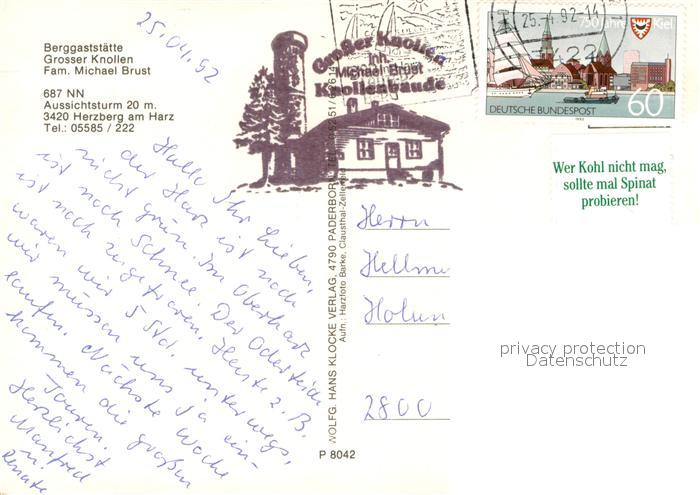 25.04.92
Berggaststätte
Grosser Knollen
Fam. Michael Brust
687 NN
Aussichtsturm 20 m.
3420 Herzberg am Harz
Tel.: 05585 / 222
Großer Knollen
Inh.
Michael Brust
Knollenbaude
25.-4.92-14
23
750 Jahre Kiel
DEUTSCHE BUNDESPOST
60
1992
Wer Kohl nicht mag,
sollte mal Spinat
probieren!
Hallo Ihr Lieben,
der Harz ist noch
nicht grün. Im Oberharz
ist noch Schnee. Der Oderteich
ist noch zugefroren. Heute z.B.
waren wir 5 Std. unterwegs,
wir müssen uns ja ein-
laufen. Nächste Woche
kommen die großen
Touren.
Herzlichst
Manfred
u.
Renate
WOLFG. HANS KLOCKE VERLAG, 4790 PADERBORN
Aufn.: Harzfoto Barke, Clausthal-Zellerfeld
P 8042
Herrn
Hellmu
2800
privacy protection
Datenschutz